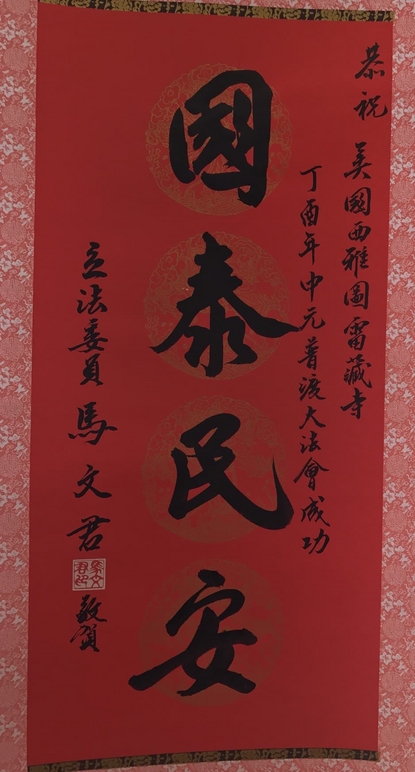 恭祝
美國西雅圖雷藏寺
丁酉年中元普渡大法會成功
國泰民安
立法委員馬文君
敬賀